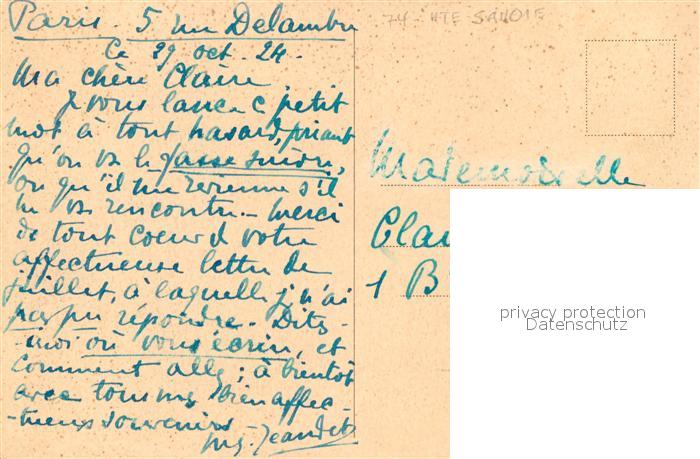 Paris. 5 rue Delambre
Ce 29 oct. 24.
Ma chère Claire,
Je vous lance ce petit
mot à tout hasard, priant
qu'on vs le fasse suivre,
ou qu'il me revienne s'il
ne vs rencontre – Merci
de tout coeur de votre
affectueuse lettre de
juillet, à laquelle je n'ai
pas pu répondre. Dites-
-moi où vous écrire, et
comment allez; à bientôt
avec tous mes bien affec-
-tueux souvenirs
74 - HTE SAVOIE
Mademoiselle
Clai
1 B
privacy protection
Datenschutz